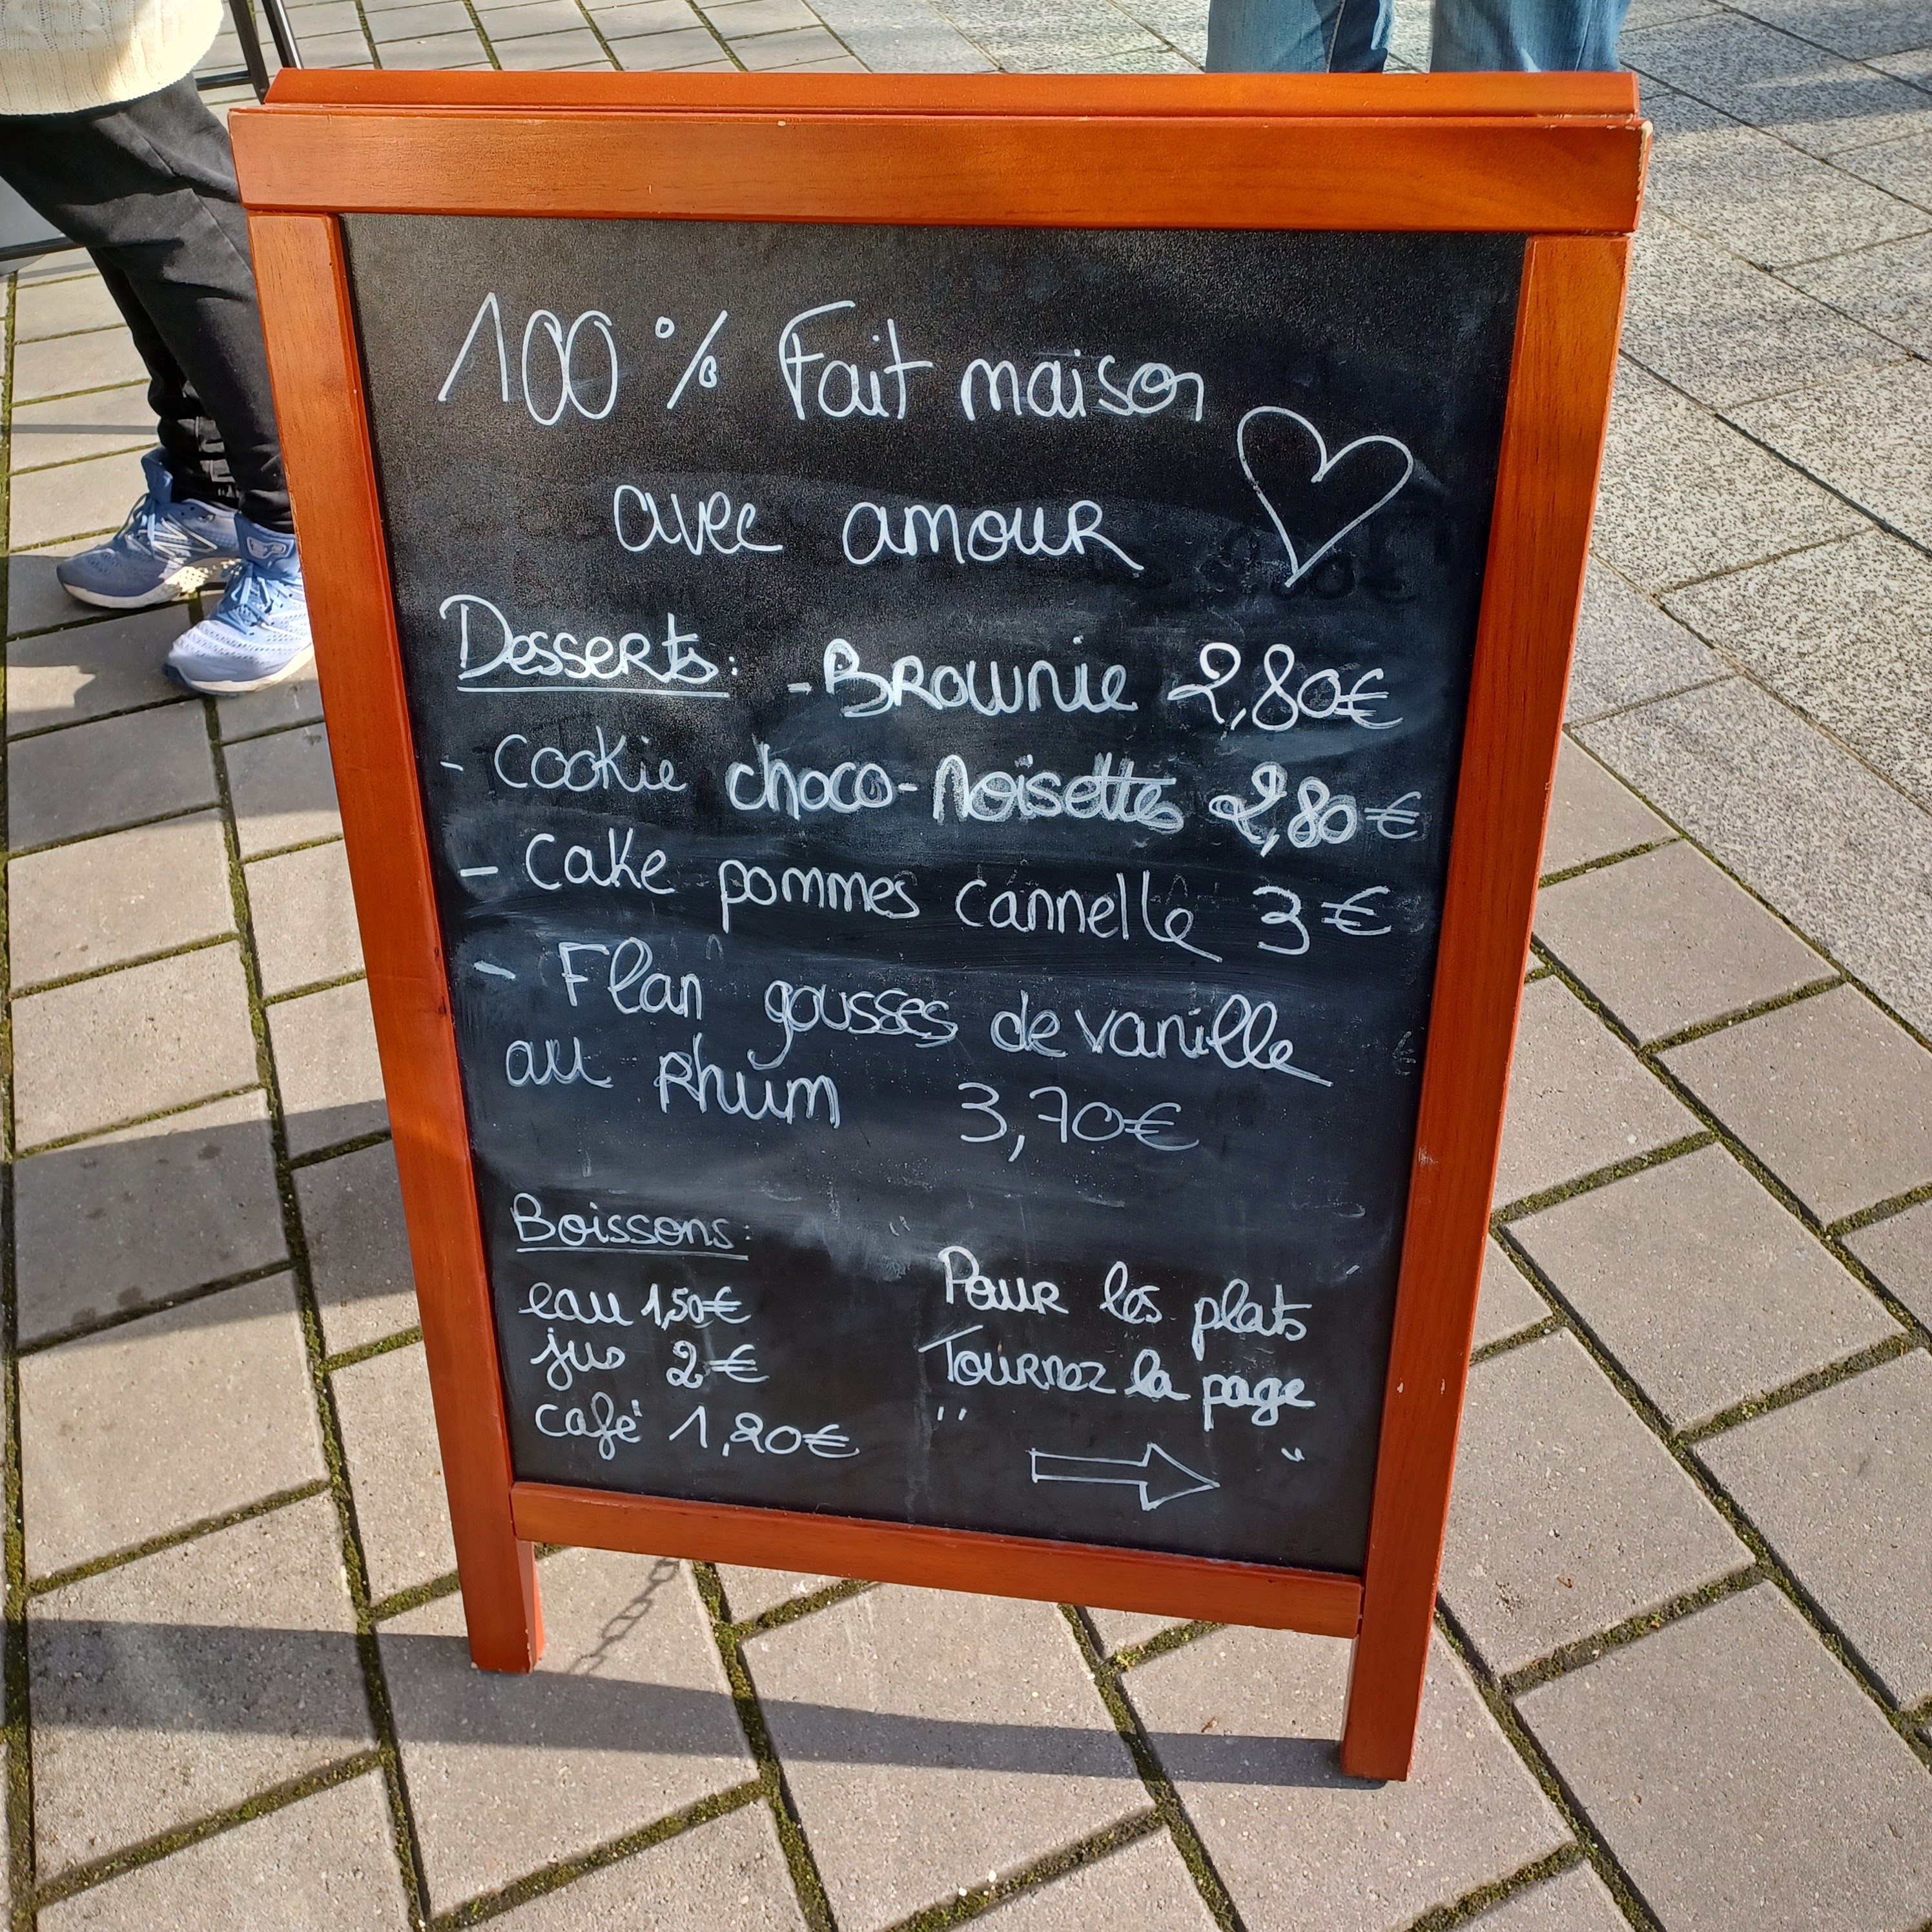 100 % Fait maison
avec amour
Desserts: - Brownie 2,80€
- Cookie choco-Noisettes 2,80€
- Cake pommes cannelle 3€
- Flan gousses de vanille
au Rhum 3,70€
Boissons:
eau 1,50€
jus 2€
café 1,20€
Pour les plats
Tournez la page